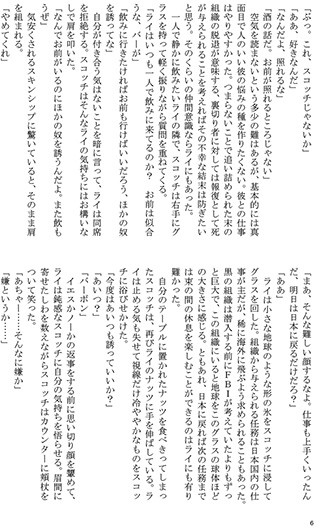 「ぶっ。これ、スコッチじゃないか」
「ああ、好きなんだ」
「なんだよ、照れるな」
「酒の話だ。お前が照れるところじゃない」
空気を読まないという多少の難はあるが、基本的には真
面目で人のいい彼の悩みの種を作りたくない。彼との仕事
はやりやすかった。つまらないことで追い詰められた末の
組織の脱退が意味する、裏切り者に対しては報復として死
が与えられることを考えればその不幸な結末は防ぎたい
と思う。そのくらいの仲間意識ならライにもあった。
一人で静かに飲みたいライの隣で、スコッチは右手にグ
ラスを持って軽く振りながら質問を重ねてくる。
「ライはいつも一人で飲みに来てるのか？　お前は似合
うな、バーが」
「飲みに行きたければお前も行けばいいだろう、ほかの奴
と」
自分が付き合う気はないことを暗に言って、ライは同席
を拒むが、スコッチはそんなライの気持ちにはお構いな
しで肩を叩いた。
「なんでお前がいるのにほかの奴を誘うんだよ。また飲も
うぜ」
気安くされるスキンシップに驚いていると、そのまま肩
を組まれる。
「やめてくれ」
「まあ、そんな難しい顔するなよ。仕事も上手くいったん
だ、明日には日本に戻るだけだろ？」
「ああ」
ライは小さな地球のような形の氷をスコッチに浸して
グラスを回した。組織から与えられる任務は日本国内の仕
事が主だが、稀に海外に飛ぶよう求められることもあった。
黒の組織は潜入する前にＦＢＩが考えていたよりもずっ
と巨大で、この組織にいると地球でさえこのグラスの球体ほど
の大きさに感じる。ともあれ、日本に戻れば次の任務まで
は束の間の休息を楽しむことができるのはライにも有り
難かった。
自分のテーブルに置かれたナッツを食べきってしまっ
たスコッチは、再びライのナッツに手を伸ばしている。ラ
イは止める気も失せて視線だけ冷ややかなものをスコッ
チに浴びせかけた。
「今度はあいつも誘っていいか？」
「あいつ？」
「バーボン」
イエスかノーかの返事をする前に思い切り顔を顰めて、
ライは鈍感なスコッチに自分の気持ちを悟らせる。眉間に
寄せたしわを数えながらスコッチはカウンターに頬杖を
ついて笑った。
「あちゃー……そんなに嫌か」
「嫌というか……」
6